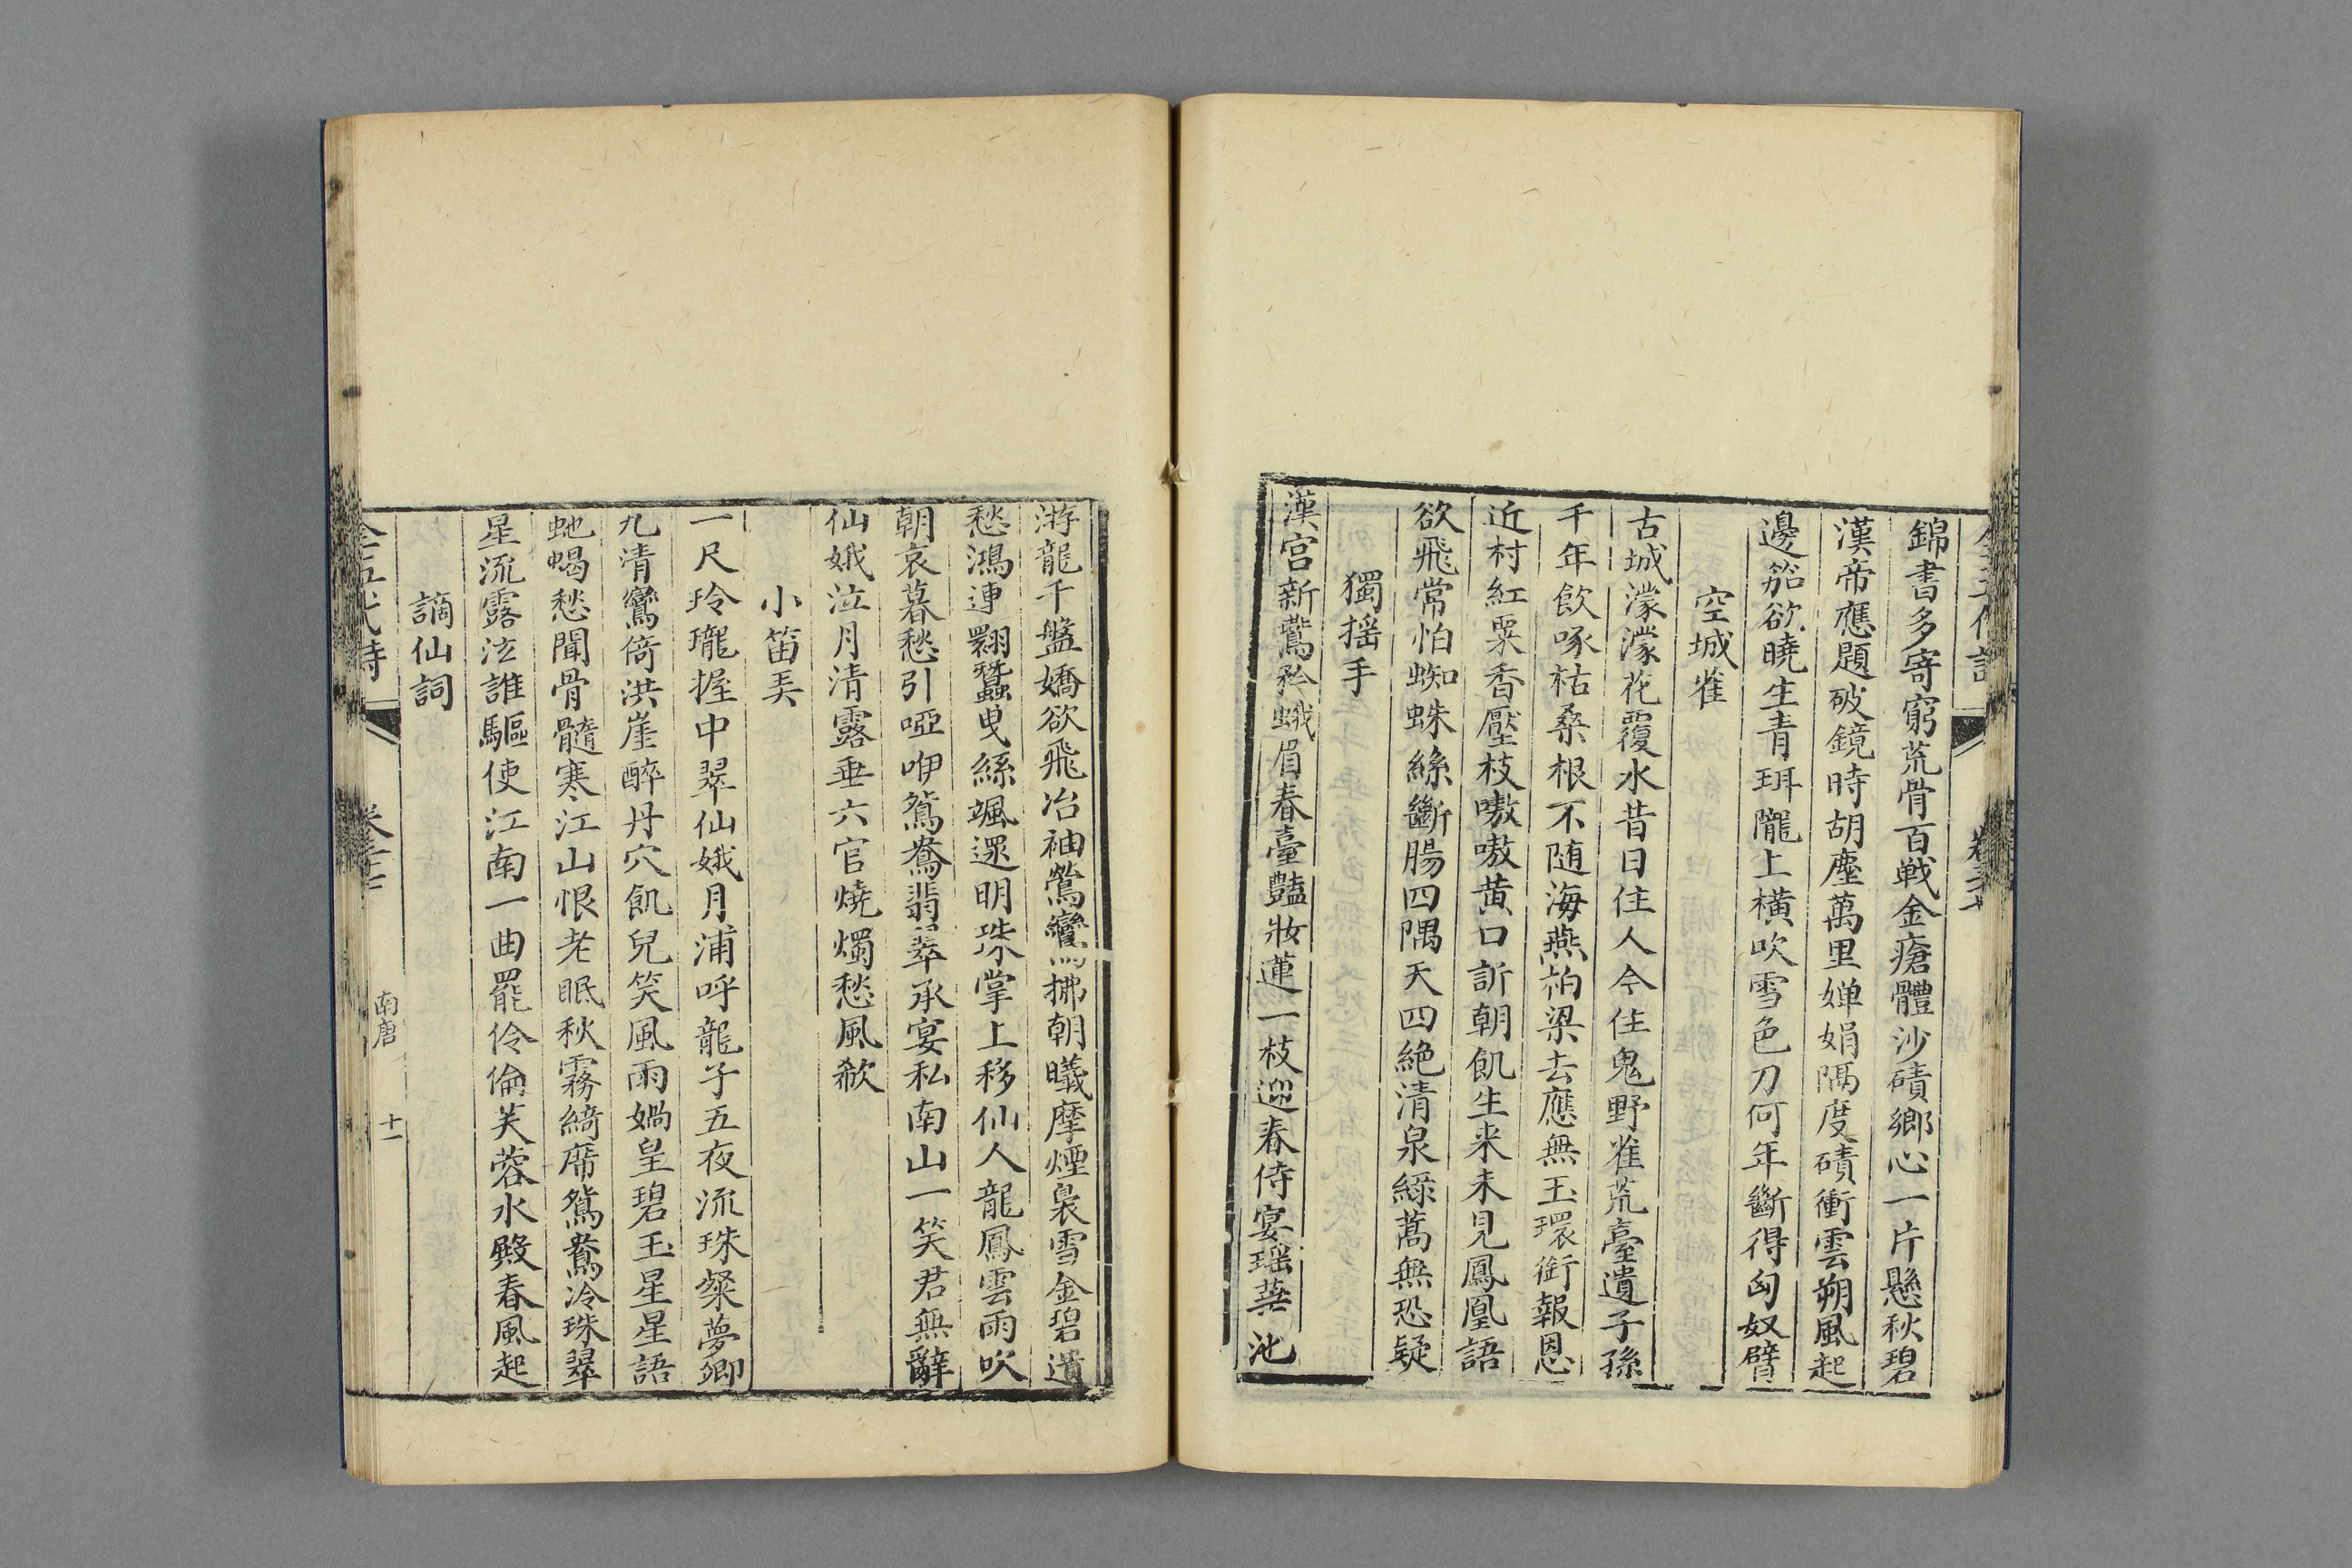 錦書多寄窮荒骨百戰金瘡體沙磧鄉心一片懸秋碧
漢帝應題破鏡時胡塵萬里嬋娟隅度磧衝雲朔風起
邊笳欲曉生青珥隴上橫吹雪色刀何年斷得匈奴臂
空城雀
古城濛濛花覆水昔日住人今住鬼野雀荒臺遺子孫
千年飲啄枯桑根不随海燕柏梁去應無玉環銜報恩
近村紅粟香壓枝嗷嗷黄口訴朝飢生来未見鳳凰語
欲飛常怕蜘蛛絲斷腸四隅天四絶清泉綠蒿無恐疑
獨摇手
漢宫新鶯矜蛾眉春臺豔妝蓮一枝迎春侍宴瑶華池
游龍千盤嬌欲飛冶袖鶯鸞拂朝曦摩煙裊雪金碧遺
愁鴻連翾蠶曳絲颯遝明珠掌上移仙人龍鳳雲雨吹
朝哀暮愁引啞咿鴛鴦翡翠承宴私南山一笑君無辭
仙娥泣月清露垂六官燒燭愁風欷
小笛弄
一尺玲瓏握中翠仙娥月浦呼龍子五夜流珠粲夢卿
九清鸞倚洪崖醉丹穴飢兒笑風雨媧皇碧玉星星語
虵蝎愁聞骨髓寒江山恨老眠秋霧綺席鴛鴦冷珠翠
星流露泫誰驅使江南一曲罷伶倫芙蓉水殿春風起
謫仙詞
全五代詩
南唐
十一